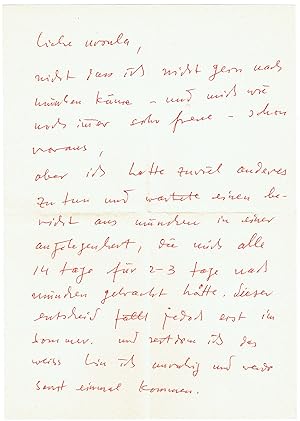 liebe ursula,
nicht dass ich nicht gern nach
münchen käme – und mich wie
noch immer sehr freue – schon
voraus,
aber ich hatte zuviel anderes
zu tun und wartete einen be-
richt aus münchen in einer
angelegenheit, die mich alle
14 tage für 2-3 tage nach
münchen gebracht hätte. dieser
entscheid fällt jedoch erst im
sommer. und seitdem ich das
weiss bin ich unruhig und werde
sonst einmal kommen.